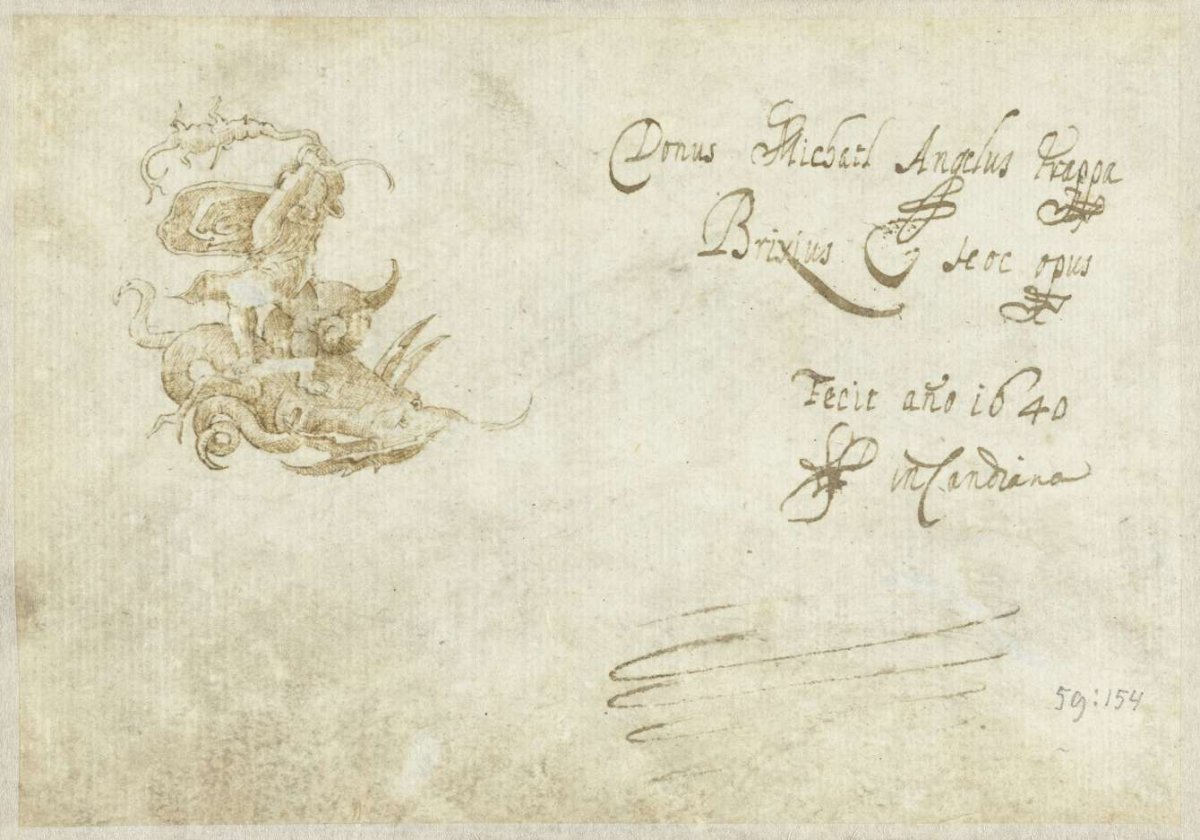 Donus Michael Angelus Trappa
Brixius hoc opus
Fecit año 1640
in Candiana
59:154